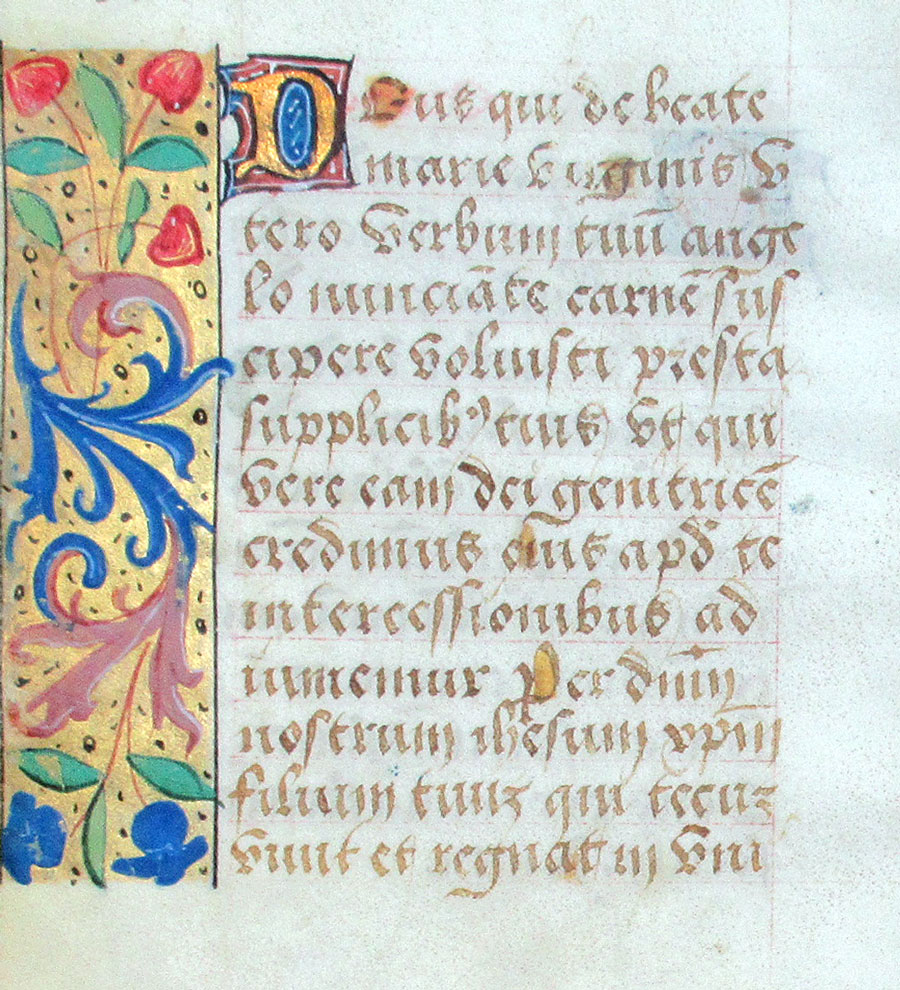 DEus qui de beate
marie virginis v
tero verbum tuū ange
lo nunciāte carnē sus
cipere voluisti presta
supplicibꝰ tuis vt qui
vere eam dei genitricē
credimus eiꝰ apd̄ te
intercessionibus ad
iuuemur Per dn̄m
nostrum ihesum xp̄m
filium tuuz qui tecuz
viuit et regnat in vni